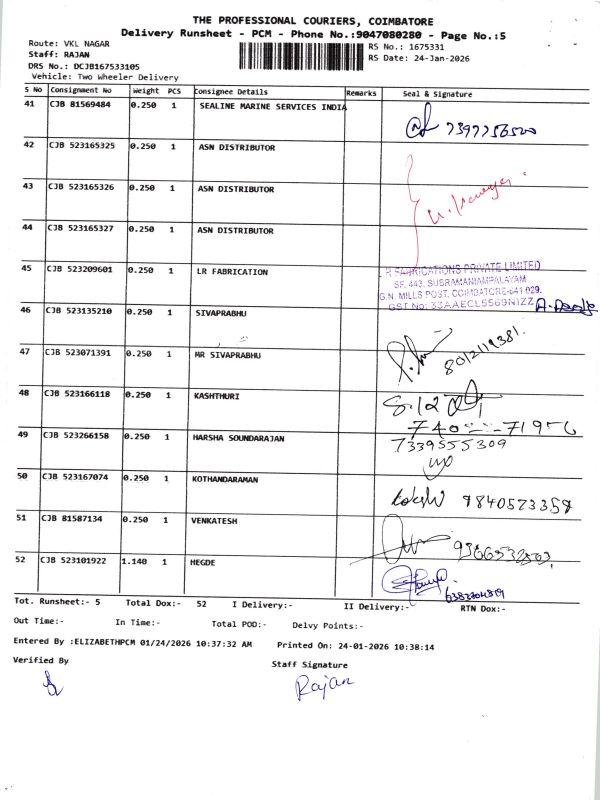 THE PROFESSIONAL COURIERS, COIMBATORE
Delivery Runsheet - PCM - Phone No.:9047080280 - Page No.:5
Route: VKL NAGAR
RS No.: 1675331
Staff: RAJAN
RS Date: 24-Jan-2026
DRS No.: DCJB167533105
Vehicle: Two Wheeler Delivery
S No Consignment No Weight PCS Consignee Details Remarks Seal & Signature
41 CJB 81569484 0.250 1 SEALINE MARINE SERVICES INDIA
7397756520
42 CJB 523165325 0.250 1 ASN DISTRIBUTOR
43 CJB 523165326 0.250 1 ASN DISTRIBUTOR
44 CJB 523165327 0.250 1 ASN DISTRIBUTOR
45 CJB 523209601 0.250 1 LR FABRICATION
R FABRICATIONS PRIVATE LIMITED
SF. 443, SUBRAMANIAMPALAYAM
G.N. MILLS POST, COIMBATORE-641 029.
GST No: 33AAECL5569N1ZZ
46 CJB 523135210 0.250 1 SIVAPRABHU
47 CJB 523071391 0.250 1 MR SIVAPRABHU
8012119381.
48 CJB 523166118 0.250 1 KASHTHURI
49 CJB 523266158 0.250 1 HARSHA SOUNDARAJAN
7339555309
50 CJB 523167074 0.250 1 KOTHANDARAMAN
9840573358
51 CJB 81587134 0.250 1 VENKATESH
52 CJB 523101922 1.140 1 HEGDE
Tot. Runsheet:- 5 Total Dox:- 52 I Delivery:- II Delivery:- RTN Dox:-
Out Time:- In Time:- Total POD:- Delvy Points:-
Entered By :ELIZABETHPCM 01/24/2026 10:37:32 AM Printed On: 24-01-2026 10:38:14
Verified By
Staff Signature
Rajan